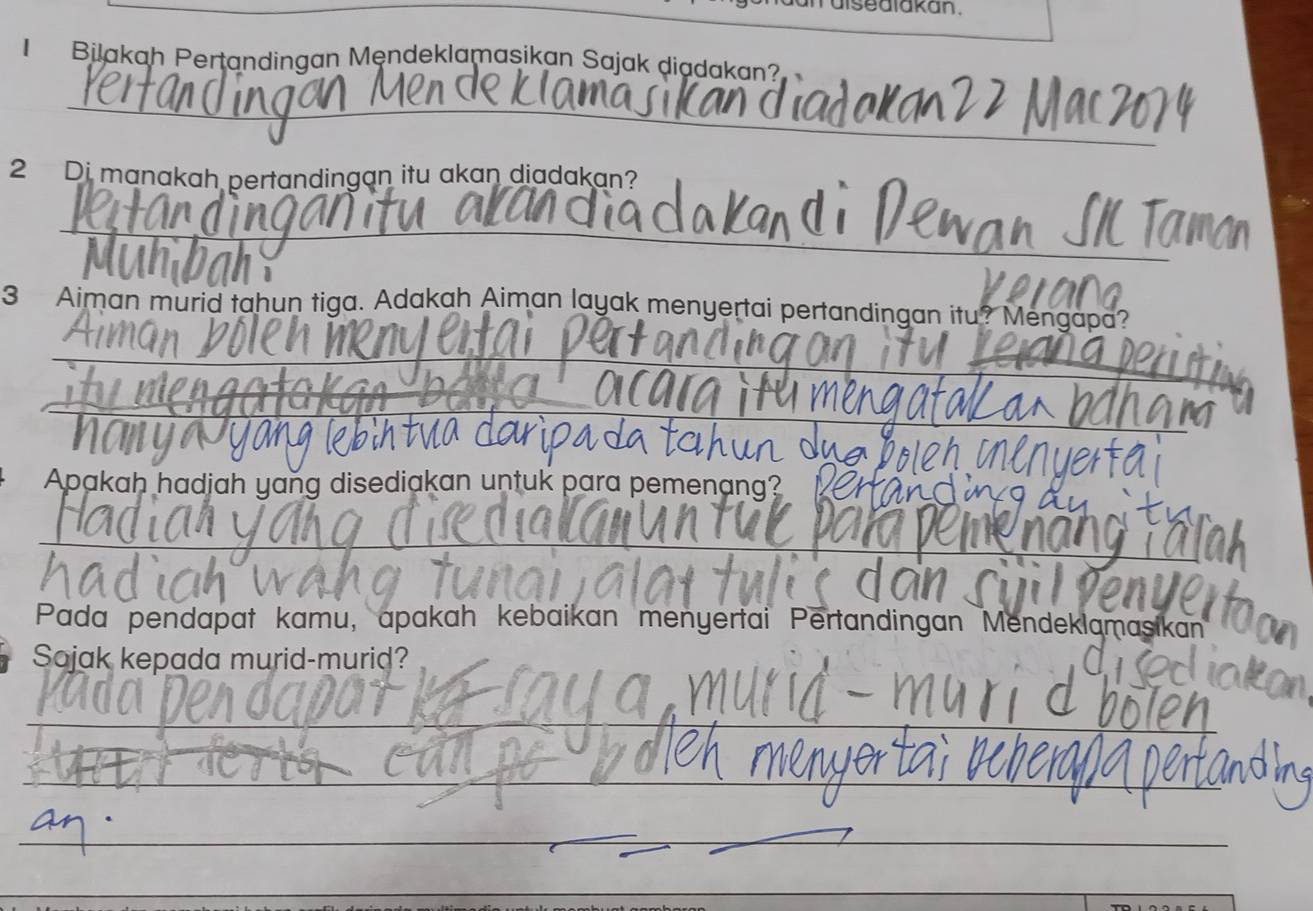 disediakan.
1 Bilakah Pertandingan Mendeklamasikan Sajak diadakan?
Pertandingan Mendeklamasikan diadakan 22 Mac 2024
2 Di manakah pertandingan itu akan diadakan?
Pertandingan itu akan diadakan di Dewan SK Taman
Muhibah.
3 Aiman murid tahun tiga. Adakah Aiman layak menyertai pertandingan itu? Mengapa?
kerana
Aiman boleh menyertai pertandingan itu kerana
itu mengatakan acara itu mengatakan bahawa
hanya yang lebih tua daripada tahun dua boleh menyertai
pertandingan itu
Apakah hadiah yang disediakan untuk para pemenang?
Hadiah yang disediakan untuk para pemenang ialah
hadiah wang tunai, alat tulis dan sijil penyertaan
disediakan.
Pada pendapat kamu, apakah kebaikan menyertai Pertandingan Mendeklamasikan
Sajak kepada murid-murid?
Pada pendapat saya, murid-murid boleh
boleh menyertai beberapa pertanding
an.